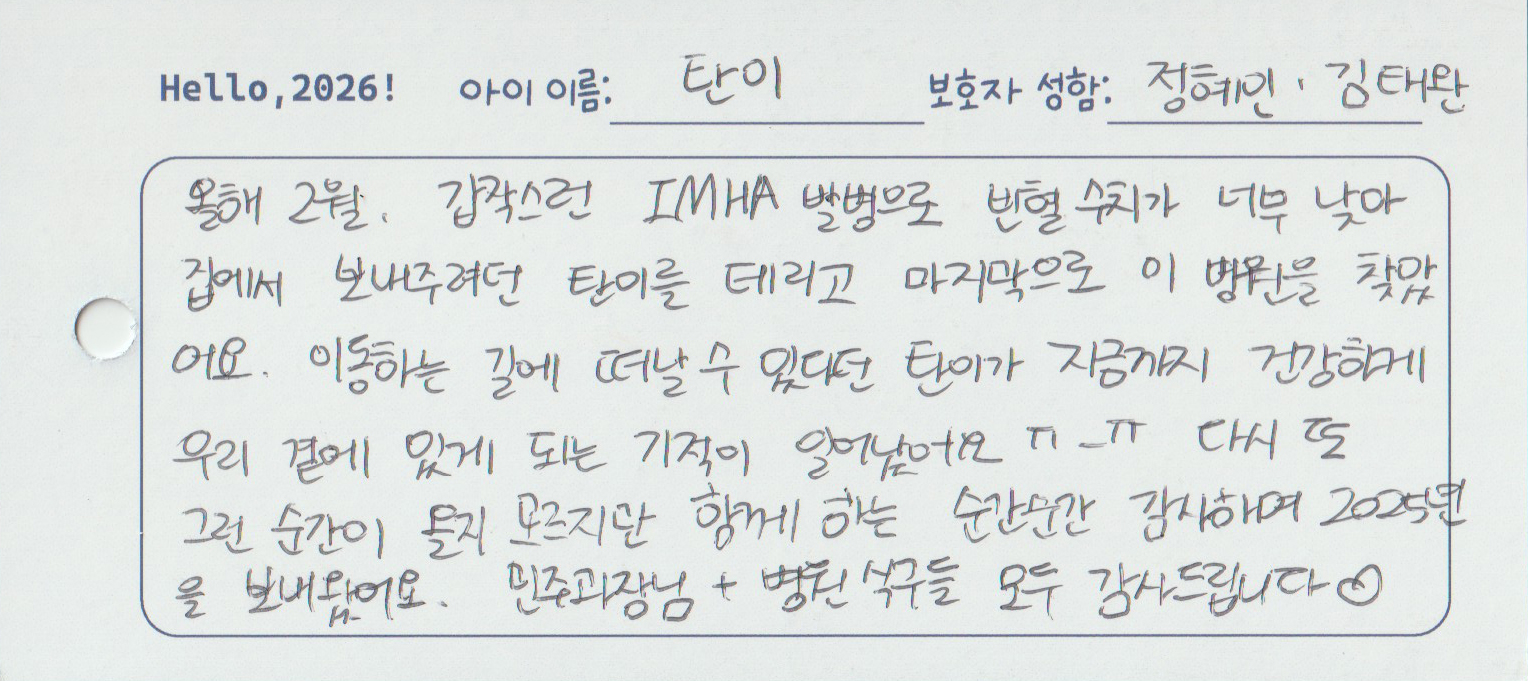 Hello,2026! 아이 이름: 탄이 보호자 성함: 정혜인 · 김태완
올해 2월. 갑작스런 IMHA 발병으로 빈혈 수치가 너무 낮아
집에서 보내주려던 탄이를 데리고 마지막으로 이 병원을 찾았
어요. 이동하는 길에 떠날 수 있다던 탄이가 지금까지 건강하게
우리 곁에 있게 되는 기적이 일어났어요 ㅠ_ㅠ 다시 또
그런 순간이 올지 모르지만 함께 하는 순간순간 감사하며 2025년
을 보내왔어요. 민주과장님 + 병원 식구들 모두 감사드립니다